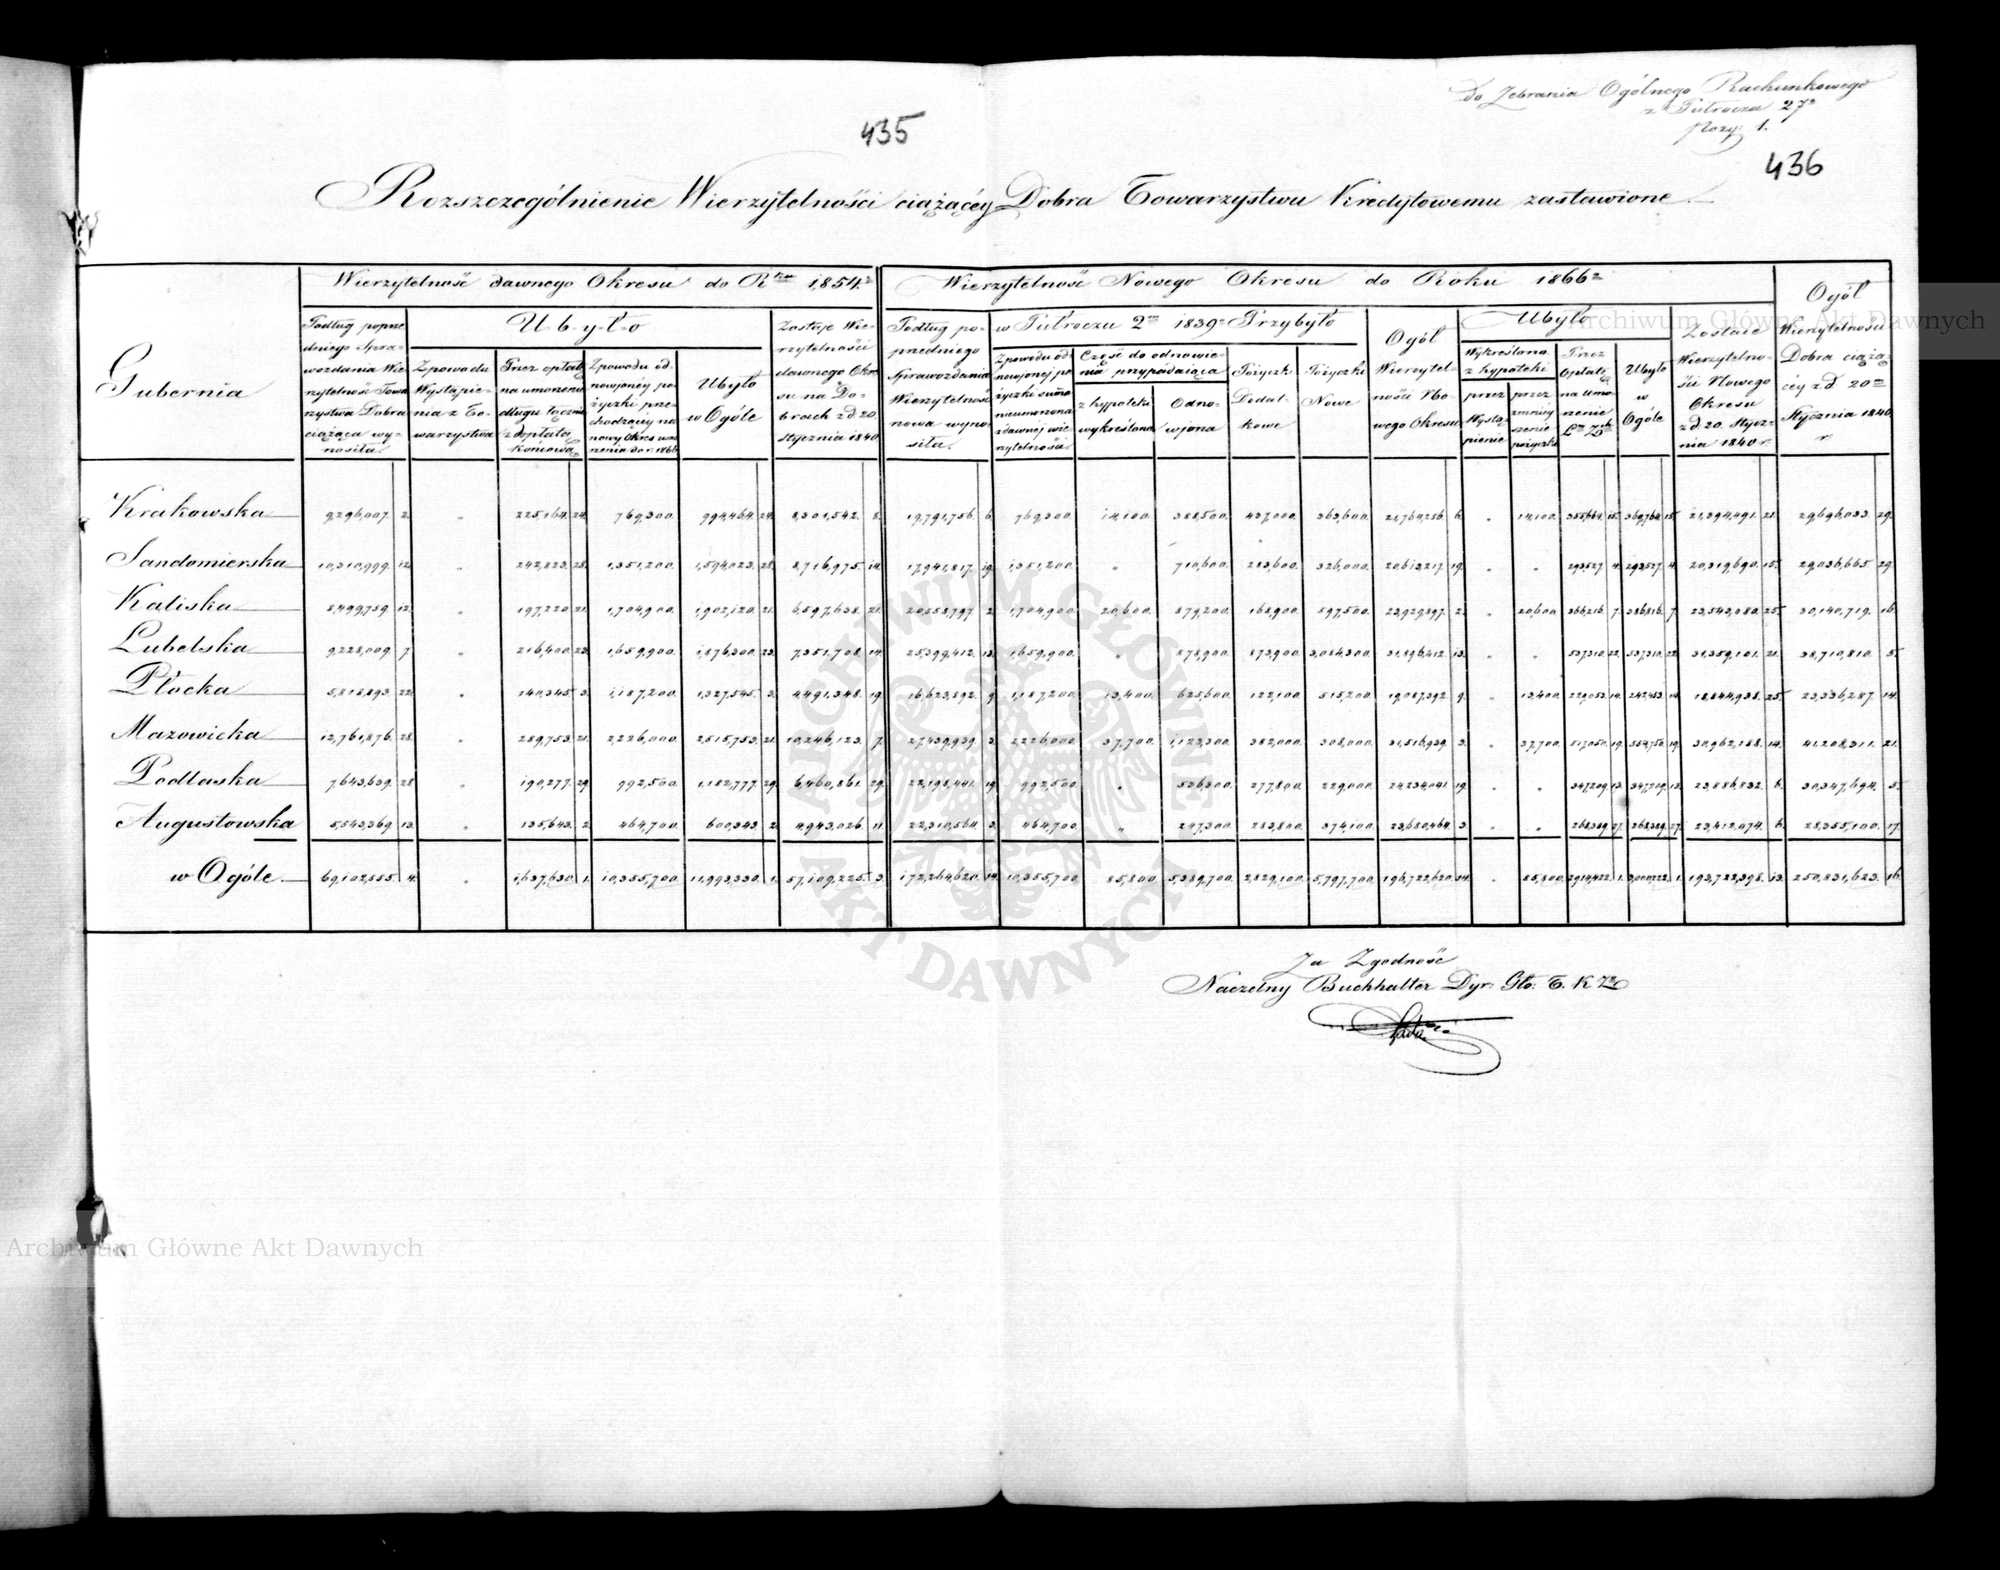 do Zebrania Ogólnego Rachunkowego
z Półrocza 27º
Pozy: 1.
435
436
Rozszczególnienie Wierzytelności ciążącéy Dobra Towarzystwu Kredytowemu zastawione.
Gubernia
Wierzytelność dawnego Okresu do Rku 1854.
Podług poprzedniego Sprawozdania Wierzytelność Towarzystwa Dobra ciążąca wynosiła.
Ubyło
Z powodu Wystąpienia z Towarzystwa
Przez opłatę na umorzenie długu łącznie z dopłatą końcową
Ubyło w Ogóle
Zostaje Wierzytelności dawnego Okresu na Dobrach z d 20 Stycznia 1840
Wierzytelność Nowego Okresu do Roku 1866
Podług poprzedniego Sprawozdania Wierzytelność nowa wynosiła.
w Półroczu 2m 1839 Przybyło
Część do odnowienia przypadająca
z hypoteki wykreślona
Odnowiona
Pożyczki Dodatkowe
Pożyczki Nowe
Ogół Wierzytelności Nowego Okresu
Ubyło
Wykreślona z hypoteki
przez Wystąpienie
Przez Opłatę na Umorzenie
Ubyło w Ogóle
Zostaje Wierzytelności Nowego Okresu z d 20. Stycznia 1840 r.
Ogół Wierzytelności Dobra ciążącéy z d 20 Stycznia 1840 r
Krakowska 9,296,007. 2. " 225,164. 24. 769,300. 994,464. 24. 8,301,542. 8. 19,791,756. 6. 769,300. 14,100. 388,500. 437,000. 363,600. 21,764,256. 6. " 14,100. 355,664. 15. 369,764. 15. 21,394,491. 21. 29,696,033. 29.
Sandomierska 10,310,999. 12. " 242,823. 28. 1,351,200. 1,594,023. 28. 8,716,975. 14. 17,941,817. 19. 1,351,200. " 710,600. 283,600. 326,000. 20,613,217. 19. " " 293,527. 4. 293,527. 4. 20,319,690. 15. 29,036,665. 29.
Kaliska 8,499,759. 12. " 197,220. 21. 1,704,900. 1,902,120. 21. 6,597,638. 21. 20,558,797. 2. 1,704,900. 20,600. 879,200. 168,900. 597,500. 23,929,897. 2. " 20,600. 366,216. 7. 386,816. 7. 23,543,080. 25. 30,140,719. 16.
Lubelska 9,228,009. 7. " 216,400. 23. 1,659,900. 1,876,300. 23. 7,351,708. 14. 25,399,412. 13. 1,659,900. " 878,900. 873,900. 3,084,300. 31,896,412. 13. " " 537,310. 22. 537,310. 22. 31,359,101. 21. 38,710,810. 5.
Płocka 5,818,893. 22. " 140,345. 3. 1,187,200. 1,327,545. 3. 4,491,348. 19. 16,623,892. 9. 1,187,200. 13,400. 625,600. 122,100. 515,200. 19,087,392. 9. " 13,400. 229,053. 14. 242,453. 14. 18,844,938. 25. 23,336,287. 14.
Mazowiecka 12,761,876. 28. " 289,753. 21. 2,226,000. 2,515,753. 21. 10,246,123. 7. 27,439,939. 3. 2,226,000. 37,700. 1,123,300. 382,000. 308,000. 31,516,939. 3. " 37,700. 517,050. 19. 554,750. 19. 30,962,188. 14. 41,208,311. 21.
Podlaska 7,643,639. 28. " 190,277. 29. 992,500. 1,182,777. 29. 6,460,861. 29. 22,198,441. 19. 992,500. " 536,300. 277,800. 229,000. 24,234,041. 19. " " 347,209. 13. 347,209. 13. 23,886,832. 6. 30,347,694. 5.
Augustowska 5,543,369. 13. " 135,643. 2. 464,700. 600,343. 2. 4,943,026. 11. 22,310,564. 3. 464,700. " 247,300. 283,800. 374,100. 23,680,464. 3. " " 268,389. 27. 268,389. 27. 23,412,074. 6. 28,355,100. 17.
w Ogóle 69,102,555. 4. " 1,637,630. 1. 10,355,700. 11,993,330. 1. 57,109,225. 3. 172,264,620. 14. 10,355,700. 85,800. 5,389,700. 2,829,100. 5,797,700. 196,722,620. 14. " 85,800. 2,914,422. 1. 3,000,222. 1. 193,722,398. 13. 250,831,623. 16.
Za Zgodność
Naczelny Buchhalter Dyr: Głó: T. K Zo
Archiwum Główne Akt Dawnych
Archiwum Główne Akt Dawnych
ARCHIWUM GŁÓWNE AKT DAWNYCH